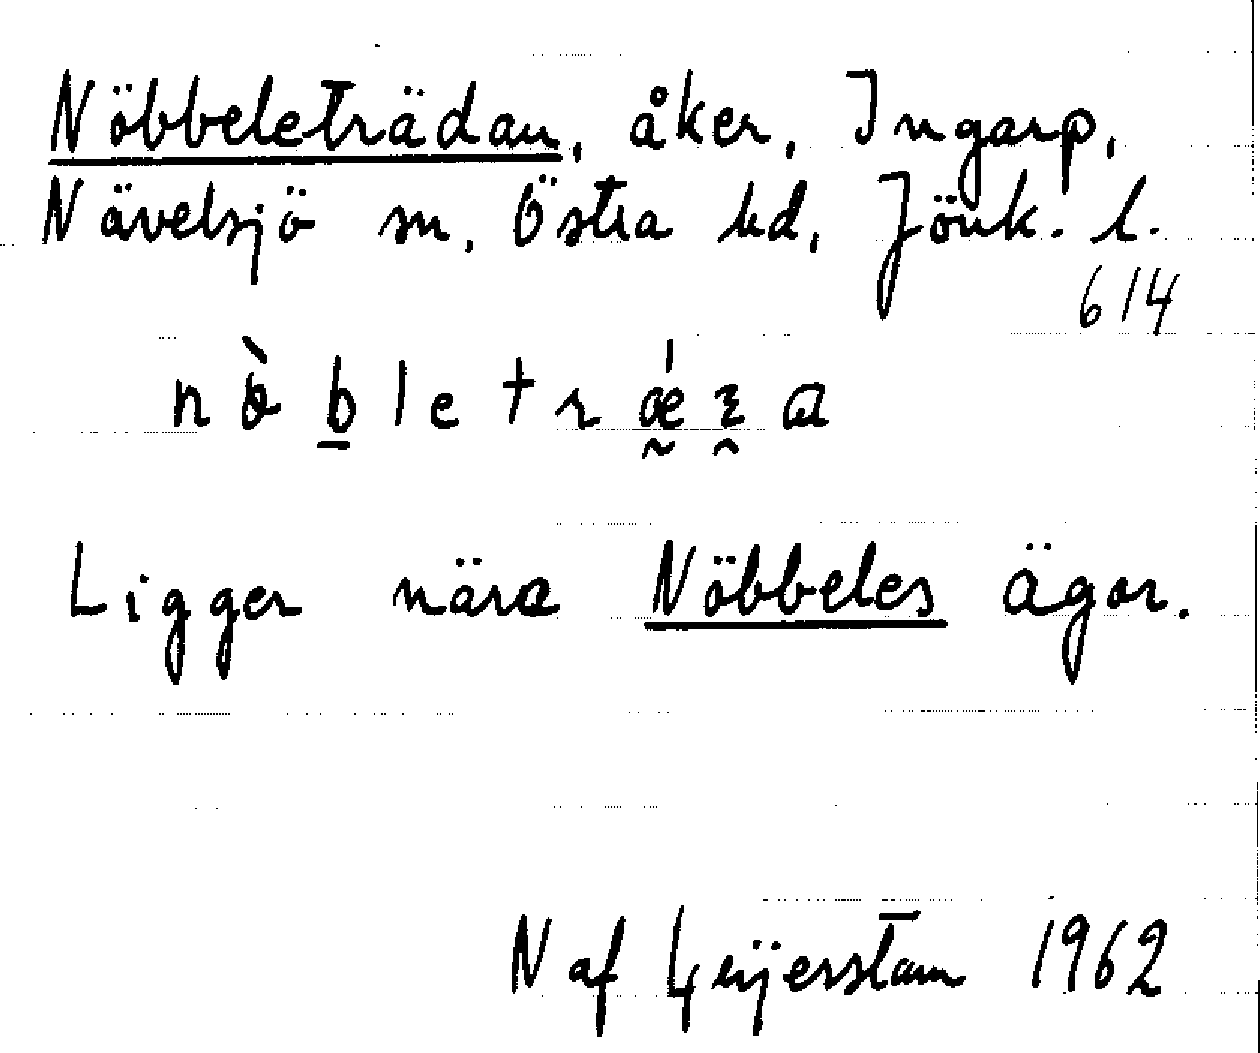 Nöbbeleträdan, åker, Ingarp,
Nävelsjö sn, Östra hd, Jönk. l.
614
Ligger nära Nöbbeles ägor.
N af Geijerstam 1962